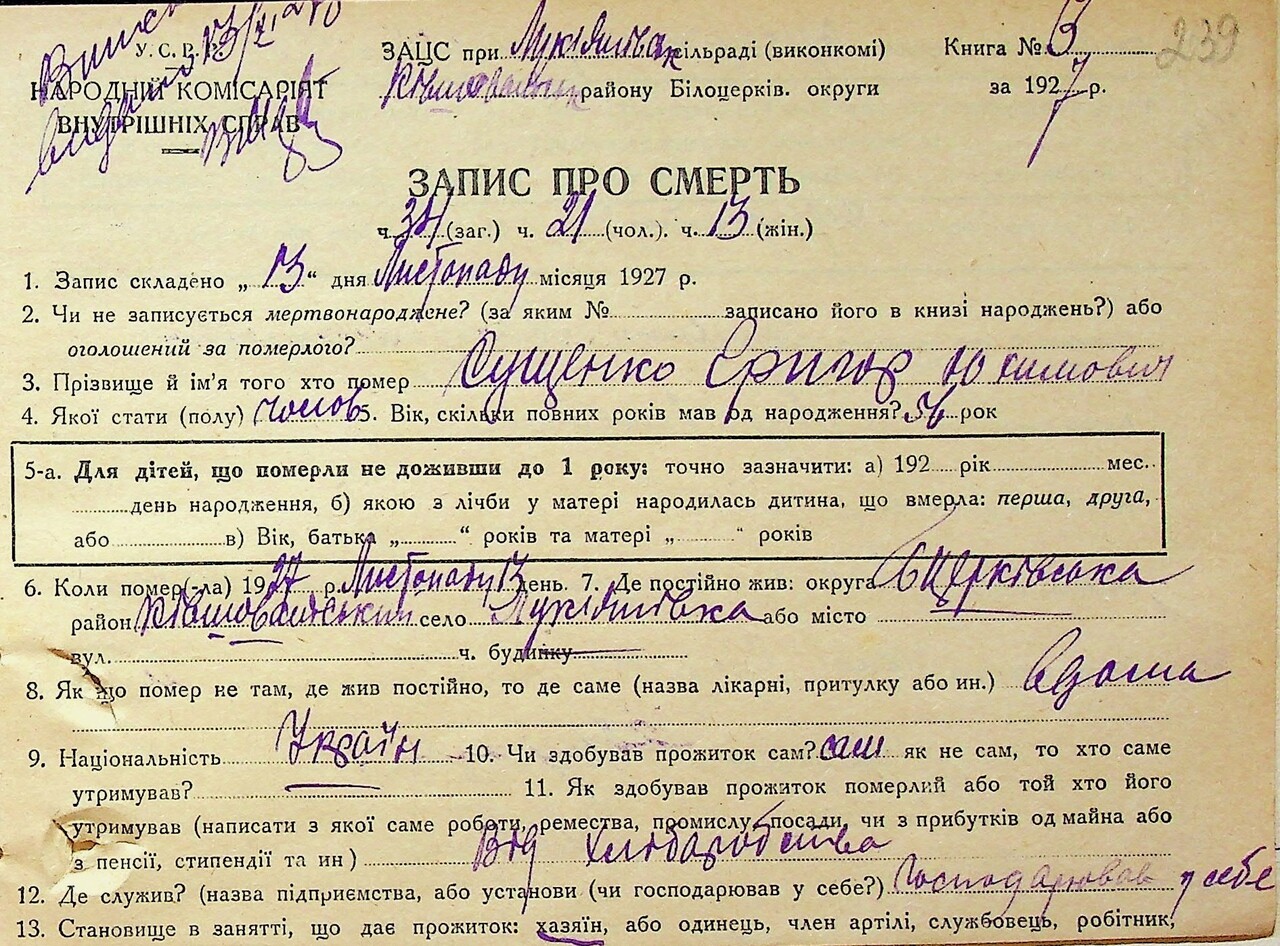 У.С.Р.Р.
НАРОДНИЙ КОМІСАРІЯТ
ВНУТРІШНІХ СПРАВ
ЗАЦС при Лукіянівськ сільраді (виконкомі)
Ківшоватськ району Білоцерків. округи
Книга № 3
за 1927 р.
239
ЗАПИС ПРО СМЕРТЬ
ч. 34 (заг.) ч. 21 (чол.). ч. 13 (жін.)
1. Запис складено „ 13 “ дня Листопаду місяця 1927 р.
2. Чи не записується мертвонароджене? (за яким № записано його в книзі народжень?) або
оголошений за померлого?
3. Прізвище й ім'я того хто помер Сущенко Григор Юхимович
4. Якої стати (полу) чолов 5. Вік, скільки повних років мав од народження? рок
5-а. Для дітей, що померли не доживши до 1 року: точно зазначити: а) 192 рік мес.
день народження, б) якою з лічби у матері народилась дитина, що вмерла: перша, друга,
або в) Вік, батька „ “ років та матері „ “ років
6. Коли помер(-ла) 1927 р. Листопаду 13 день. 7. Де постійно жив: округа БЦерківська
район Ківшоватський село Лукіянівка або місто
вул. ч. будинку
8. Як що помер не там, де жив постійно, то де саме (назва лікарні, притулку або ин.) вдома
9. Національність Україн 10. Чи здобував прожиток сам? сам як не сам, то хто саме
утримував? 11. Як здобував прожиток померлий або той хто його
утримував (написати з якої саме роботи, ремества, промислу, посади, чи з прибутків од майна або
з пенсії, стипендії та ин ) Від хліборобства
12. Де служив? (назва підприємства, або установи (чи господарював у себе?) Господарював у себе
13. Становище в занятті, що дає прожиток: хазяїн, або одинець, член артілі, службовець, робітник,